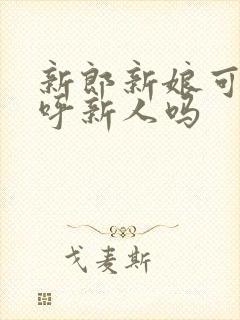 新郎新娘可
呼新人吗
戈麦斯